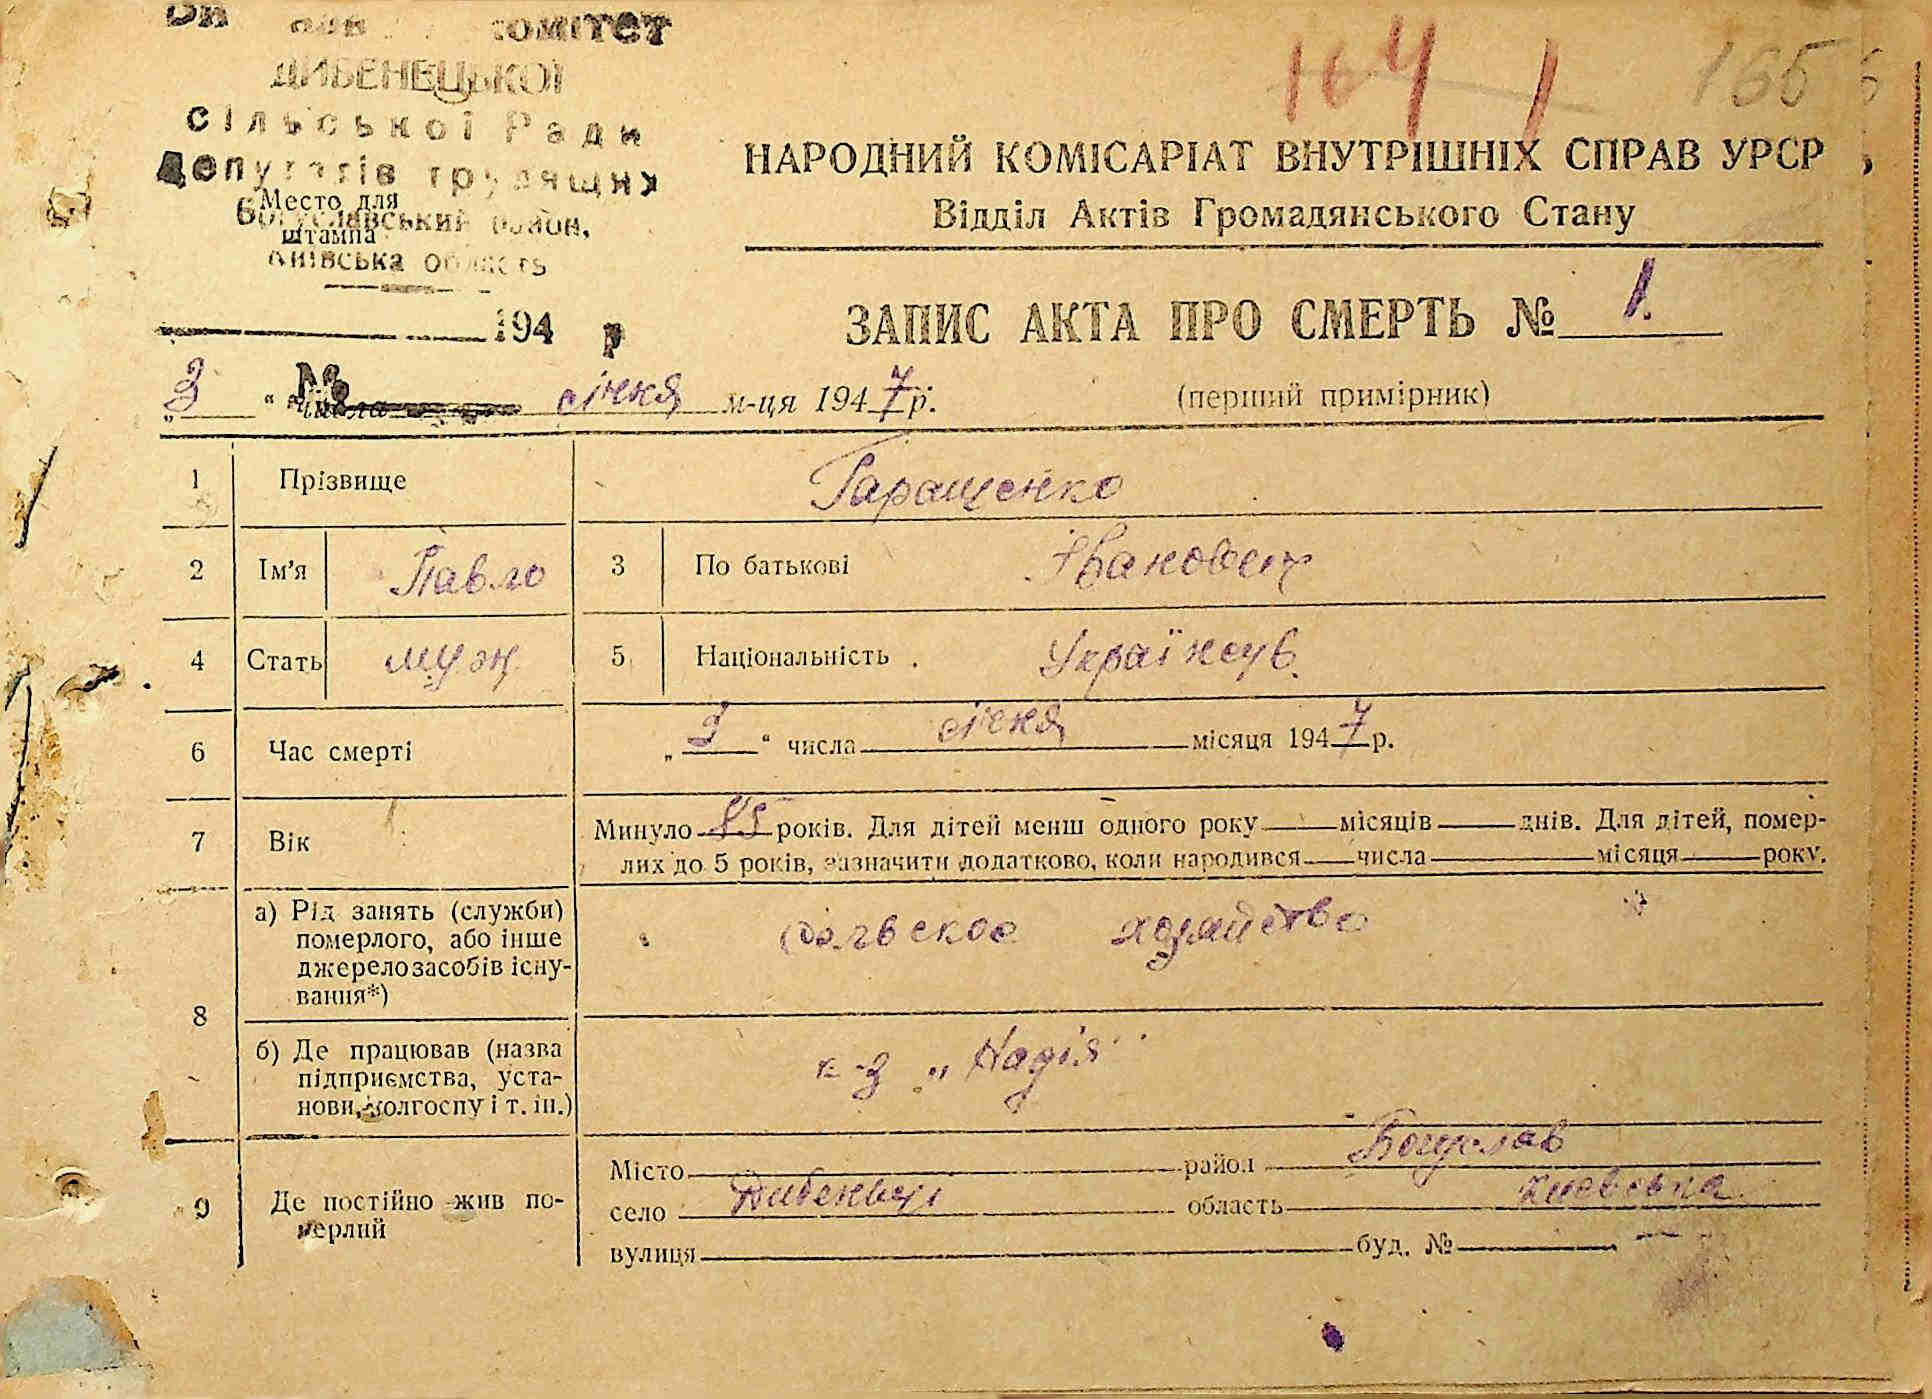 комітет
ДИБЕНЕЦЬКОЇ
сільської Ради
Депутатів трудящих
Место для
Богуславський район,
штампа
Київська область
194 р
№
164 1 165
НАРОДНИЙ КОМІСАРІАТ ВНУТРІШНІХ СПРАВ УРСР
Відділ Актів Громадянського Стану
ЗАПИС АКТА ПРО СМЕРТЬ № 1.
„3“ числа січня м-ця 1947 р.
(перший примірник)
1 Прізвище Гаращенко
2 Ім'я Павло 3 По батькові Іванович
4 Стать муж 5 Національність Українець
6 Час смерті „3“ числа січня місяця 1947 р.
7 Вік Минуло 85 років. Для дітей менш одного року місяців днів. Для дітей, помер-
лих до 5 років, зазначити додатково, коли народився числа місяця року.
8 а) Рід занять (служби)
померлого, або інше
джерело засобів існу-
вання*)
сельское хозяйство
б) Де працював (назва
підприємства, уста-
нови, колгоспу і т. ін.)
к-з „Надія"
9 Де постійно жив по-
мерлий
Місто район Богуслав
село Дибенци область Києвська
вулиця буд. № —